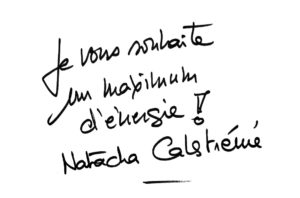 Je vous souhaite
un maximum
d'énergie !
Natacha Calestrémé